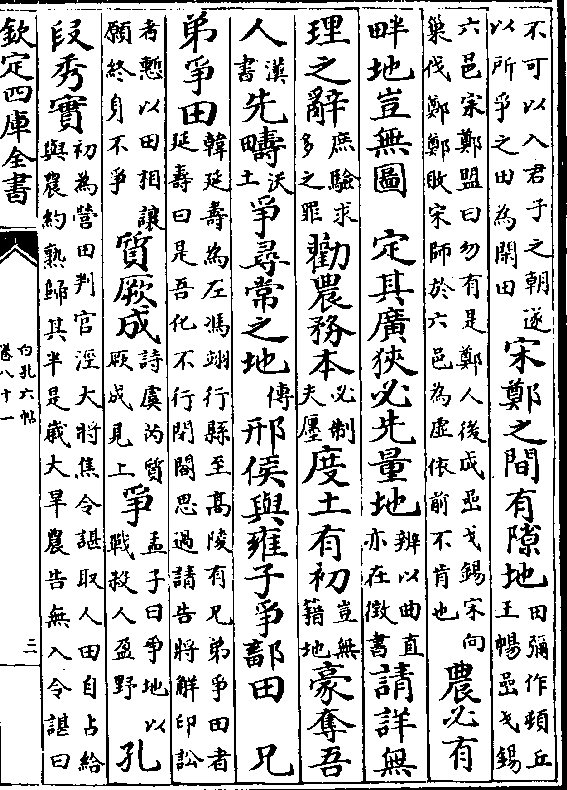 不可以入君子之朝遂以所爭之田為閑田宋鄭之間有隙地田彌作頓丘王暢嵒戈錫
六邑宋鄭盟曰勿有是鄭人後成嵒戈錫宋向巢伐鄭鄭敗宋師於六邑為虛依前不肯也農必有
畔地豈無圖 定其廣狹必先量地辨以曲直亦在徵書請詳無
理之辭庶驗求多之罪勸農務本必制夫廛度土有初豈無籍地豪奪吾
人漢書先疇沃土爭尋常之地傳邢侯與雍子爭鄐田 兄
弟爭田韓延壽為左馮翊行縣至髙陵有兄弟爭田者延壽曰是吾化不行閉閣思過請告將解印訟
者慙以田相讓願終身不爭質厥成詩虞芮質厥成見上爭孟子曰爭地以戰殺人盈野孔
段秀實初為營田判官涇大將焦令諶取人田自占給與農約熟歸其半是歲大旱農告無入令諶曰
欽定四庫全書
白孔六帖
卷八十一
三